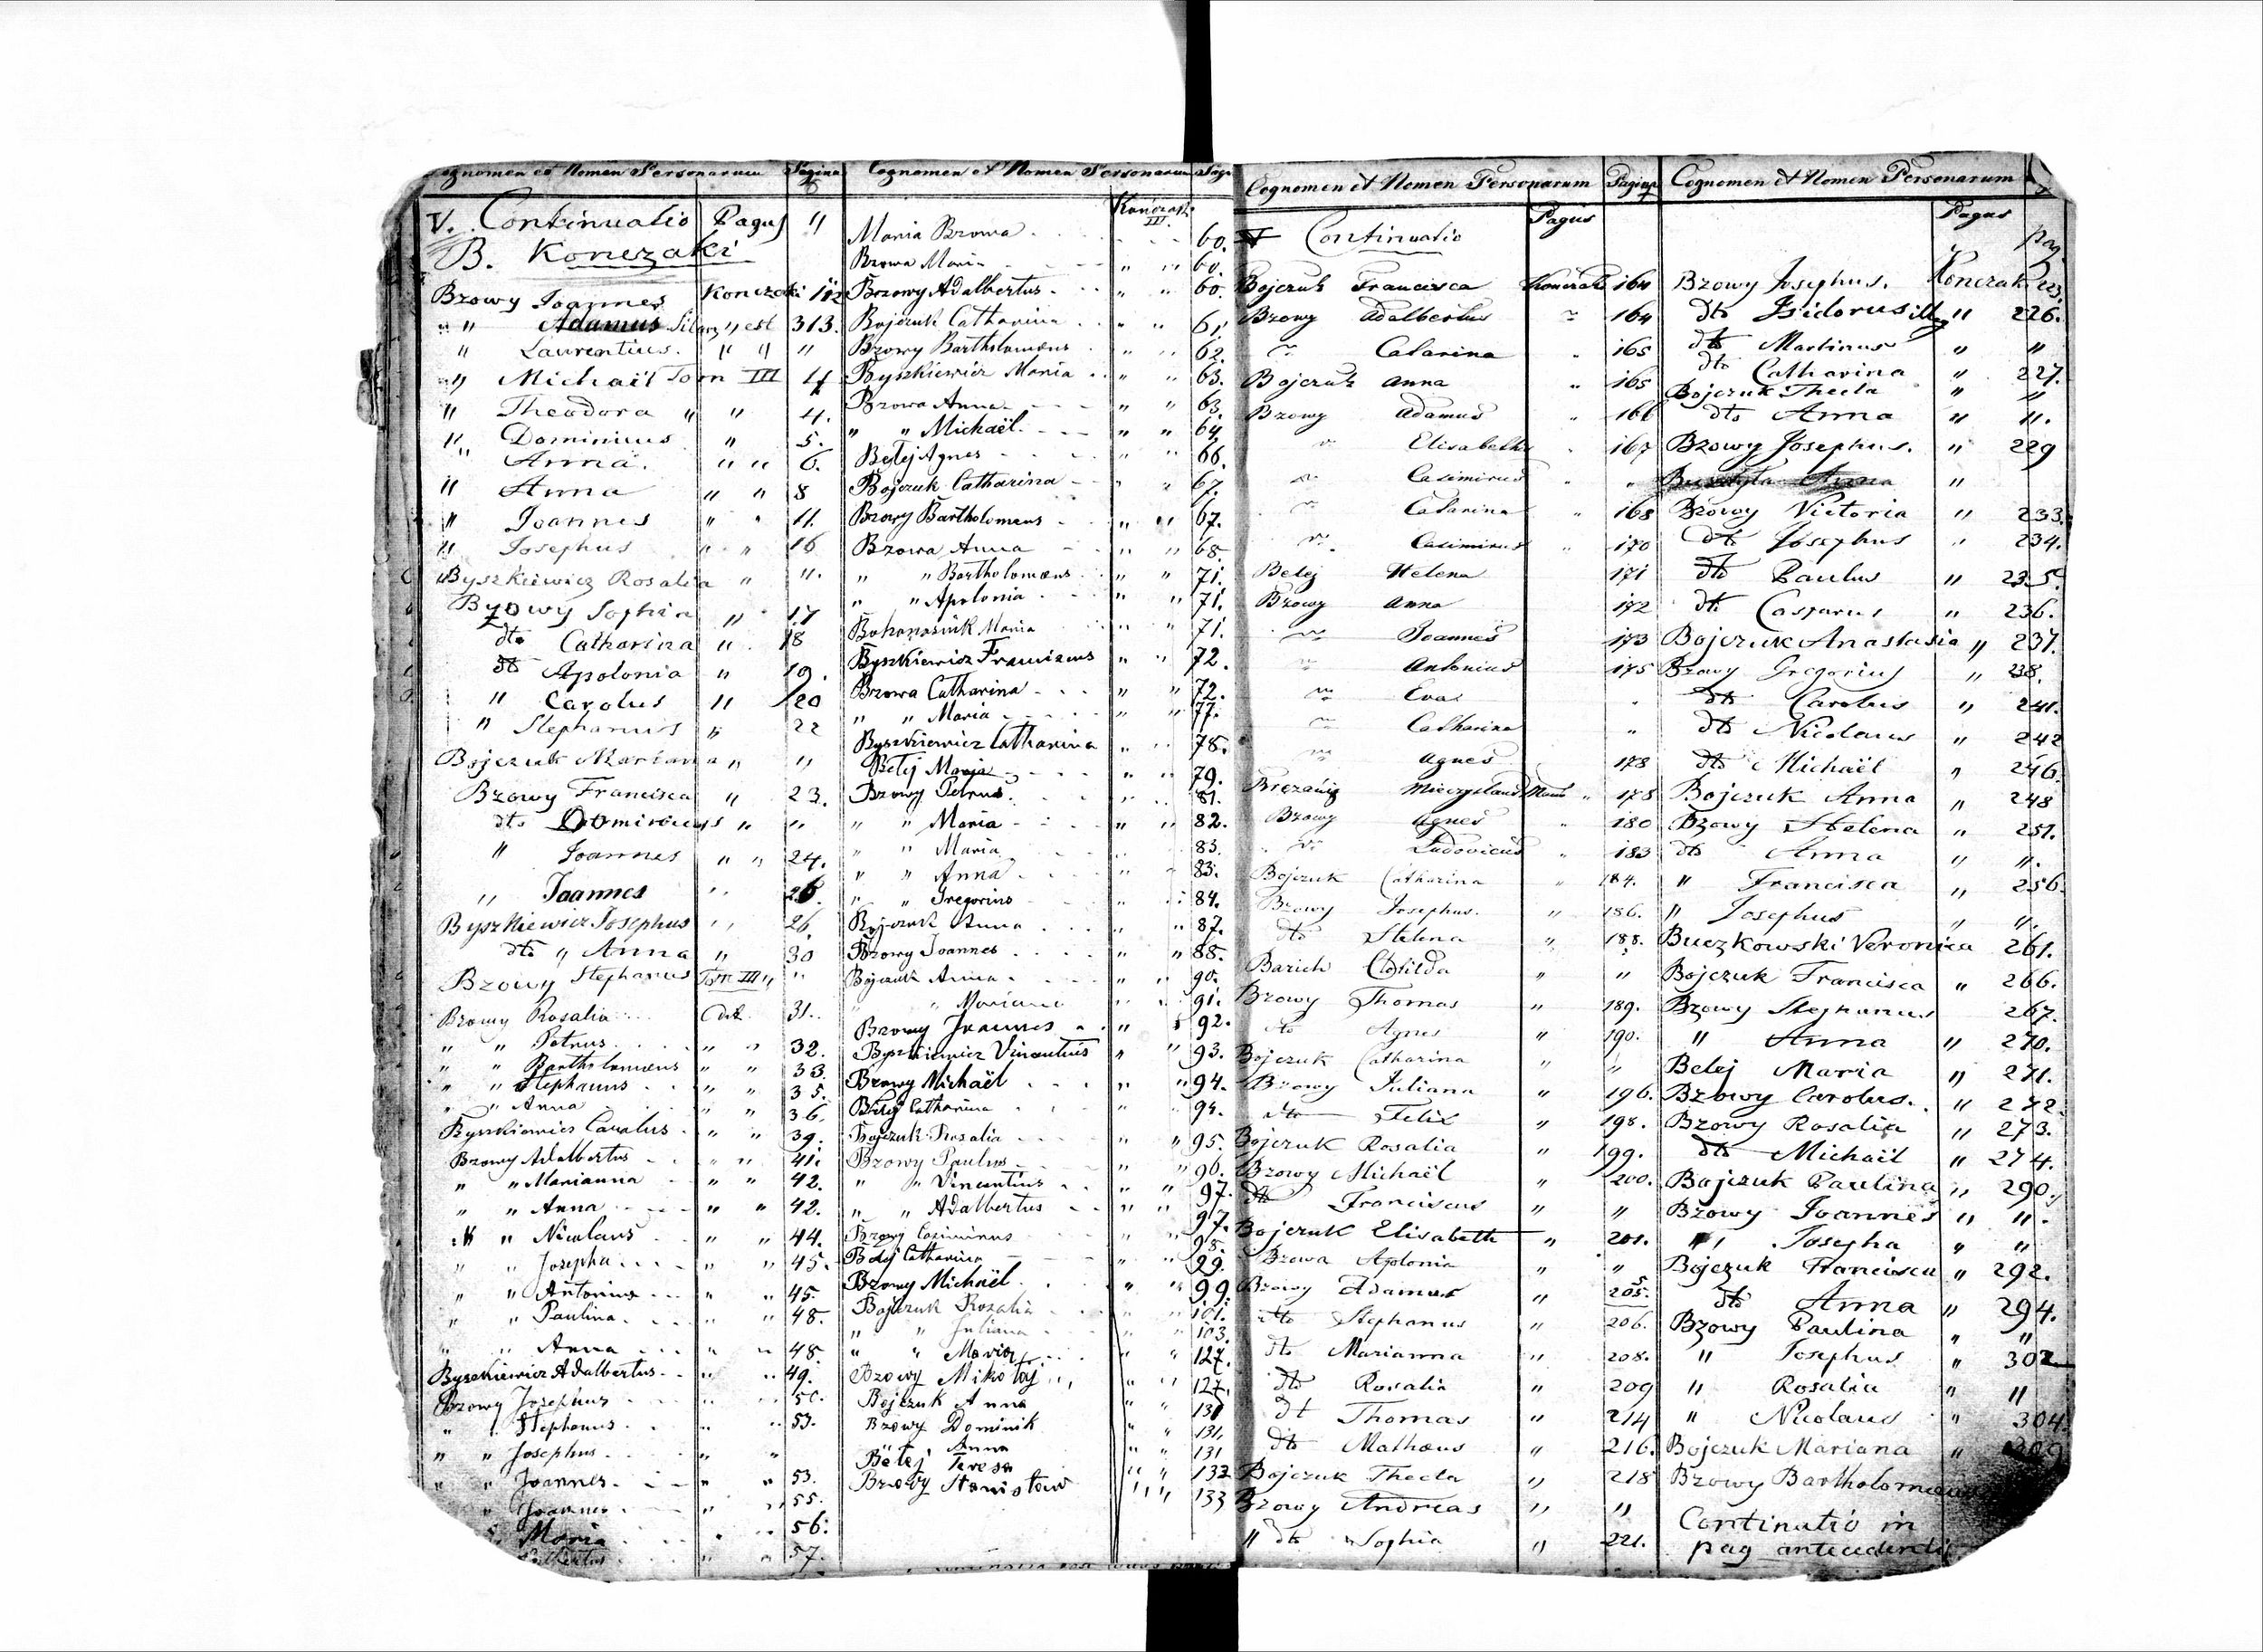 Cognomen et Nomen Personarum Pagina
V. Continuatio Pagus "
B. Konczaki
Brzowy Joannes Konczaki 112
" " Adamus " est 313.
" Laurentius. " " "
" Michaël Tom III 4
" Theodora " " 4.
" Dominicus " 5.
" Anna. " " 6.
" Anna " " 8
" Joannes " " 11.
" Josephus " " 16
Byszkiewicz Rosalia " 11.
Bzowy Sophia " 17
dto Catharina " 18
dto Apolonia " 19.
" Carolus " 20
" Stephanus " 22
Bojczuk Mariana " "
Bzowy Francisca " 23.
dto Dominicus " "
" Joannes " " 24.
" Joannes " 26.
Byszkiewicz Josephus " 26.
dto " Anna " 30
Bzowy Stephanus Tom III " "
Bzowy Rosalia dto 31.
" " Petrus " " 32.
" " Bartholomæus " " 33.
" " Stephanus " " 35.
" " Anna " " 36.
Byszkiewicz Carolus " " 39.
Bzowy Adalbertus " " 41.
" " Marianna " " 42.
" " Anna " " 42.
" " Nicolaus " " 44.
" " Josepha " " 45.
" " Antonius " " 45.
" " Paulina " " 48.
" " Anna " " 48.
Byszkiewicz Adalbertus " " 49.
Bzowy Josephus " " 50.
" " Stephanus " " 53.
" " Josephus " "
" " Joannes " " 53.
" Joannes " " 55.
Maria " " 56.
" " 57.
Cognomen et Nomen Personarum Pagi
Konczak III.
Maria Bzowa 60.
Bzowa Maria " " 60.
Bzowy Adalbertus " " 60.
Bojczuk Catharina " " 61.
Bzowy Bartholomæus " " 62.
Byszkiewicz Maria " " 63.
Bzowa Anna " " 63.
" " Michaël " " 64.
Belej Agnes " " 66.
Bojczuk Catharina " " 67.
Bzowy Bartholomeus " " 67.
Bzowa Anna " " 68.
" " Bartholomæus " " 71.
" " Apolonia " " 71.
Maria " " 71.
Byszkiewicz Franciscus " " 72.
Bzowa Catharina " " 72.
" " Maria " " 77.
Byszkiewicz Catharina " " 78.
Belej Maria " " 79.
Bzowy Petrus " " 81.
" " Maria " " 82.
" " Maria " 83.
" " Anna " " 83.
" " Gregorius " " 84.
Bojczuk Anna " 87.
Bzowy Joannes " 88.
Bojczuk Anna " " 90.
" " Mariana " " 91.
Bzowy Joannes " " 92.
Byszkiewicz Vincentius " " 93.
Bzowy Michaël " " 94.
Belej Catharina " " 94.
Bojczuk Rosalia " " 95.
Bzowy Paulus " " 96.
" " Vincentius " " 97.
" " Adalbertus " " 97.
Bzowy Casimirus " " 98.
Belej Catharina " " 99.
Bzowy Michaël " " 99.
Bojczuk Rozalia " " 101.
" " Juliana " " 103.
" " Maria " " 127.
Bzowy Mikołaj " " 127.
Bojczuk Anna " " 131
Bzowy Dominik " " 131.
Anna " " 131
Bełej Teresa " " 132
Bzowy Stanisław " " 133
Cognomen et Nomen Personarum Pagina
Continuatio Pagus
Bojczuk Francisca Konczaki 164
Bzowy Adalbertus " 164
" Catarina " 165
Bojczuk Anna " 165
Bzowy Adamus " 166
" Elisabetha " 167
" Casimirus " "
" Catarina " 168
" Casimirus " 170
Belej Helena 171
Bzowy Anna 172
" Joannes 173
" Antonius 175
" Eva "
" Catharina "
" Agnes 178
Mieczyslaus " 178
Bzowy Agnes " 180
" Ludovicus " 183
Bojczuk Catharina " 184.
Bzowy Josephus. " 186.
dto Helena " 188.
Barich Clotilda " "
Bzowy Thomas " 189.
dto Agnes " 190.
Bojczuk Catharina " "
Bzowy Juliana " 196.
dto Felix " 198.
Bojczuk Rosalia " 199.
Bzowy Michaël " 200.
dto Franciscus " "
Bojczuk Elisabeth " 201.
Bzowa Apolonia " "
Bzowy Adamus " 205.
dto Stephanus " 206.
dto Marianna " 208.
dto Rosalia " 209
dt Thomas " 214
dto Mathæus " 216.
Bojczuk Thecla " 218
Bzowy Andreas " "
" dto Sophia " 221.
Cognomen et Nomen Personarum
Pagus pag.
Bzowy Josephus. Konczak 223.
dto Isidorus illeg " 226.
dto Martinus " "
dto Catharina " 227.
Bojczuk Thecla " "
dto Anna " 11.
Bzowy Josephus. " 229
Anna "
Bzowy Victoria " 233.
dto Josephus " 234.
dto Paulus " 235.
dto Casparus " 236.
Bojczuk Anastasia " 237.
Bzowy Gregorius " 238.
dto Carolus " 241.
dto Nicolaus " 242
dto Michaël " 246.
Bojczuk Anna " 248
Bzowy Helena " 251.
dto Anna " ".
" Francisca " 256.
" Josephus " ".
Buczkowski Veronica 261.
Bojczuk Francisca " 266.
Bzowy Stephanus 267.
" Anna " 270.
Belej Maria " 271.
Bzowy Carolus. " 272.
Bzowy Rosalia " 273.
dto Michaël " 274.
Bojczuk Paulina " 290.
Bzowy Joannes " ".
" Josepha " "
Bojczuk Francisca " 292.
dto Anna " 294.
Bzowy Paulina " "
" Josephus " 302
" Rosalia " "
" Nicolaus " 304.
Bojczuk Mariana "
Bzowy Bartholomæus
Continuatio in
pag antecedenti